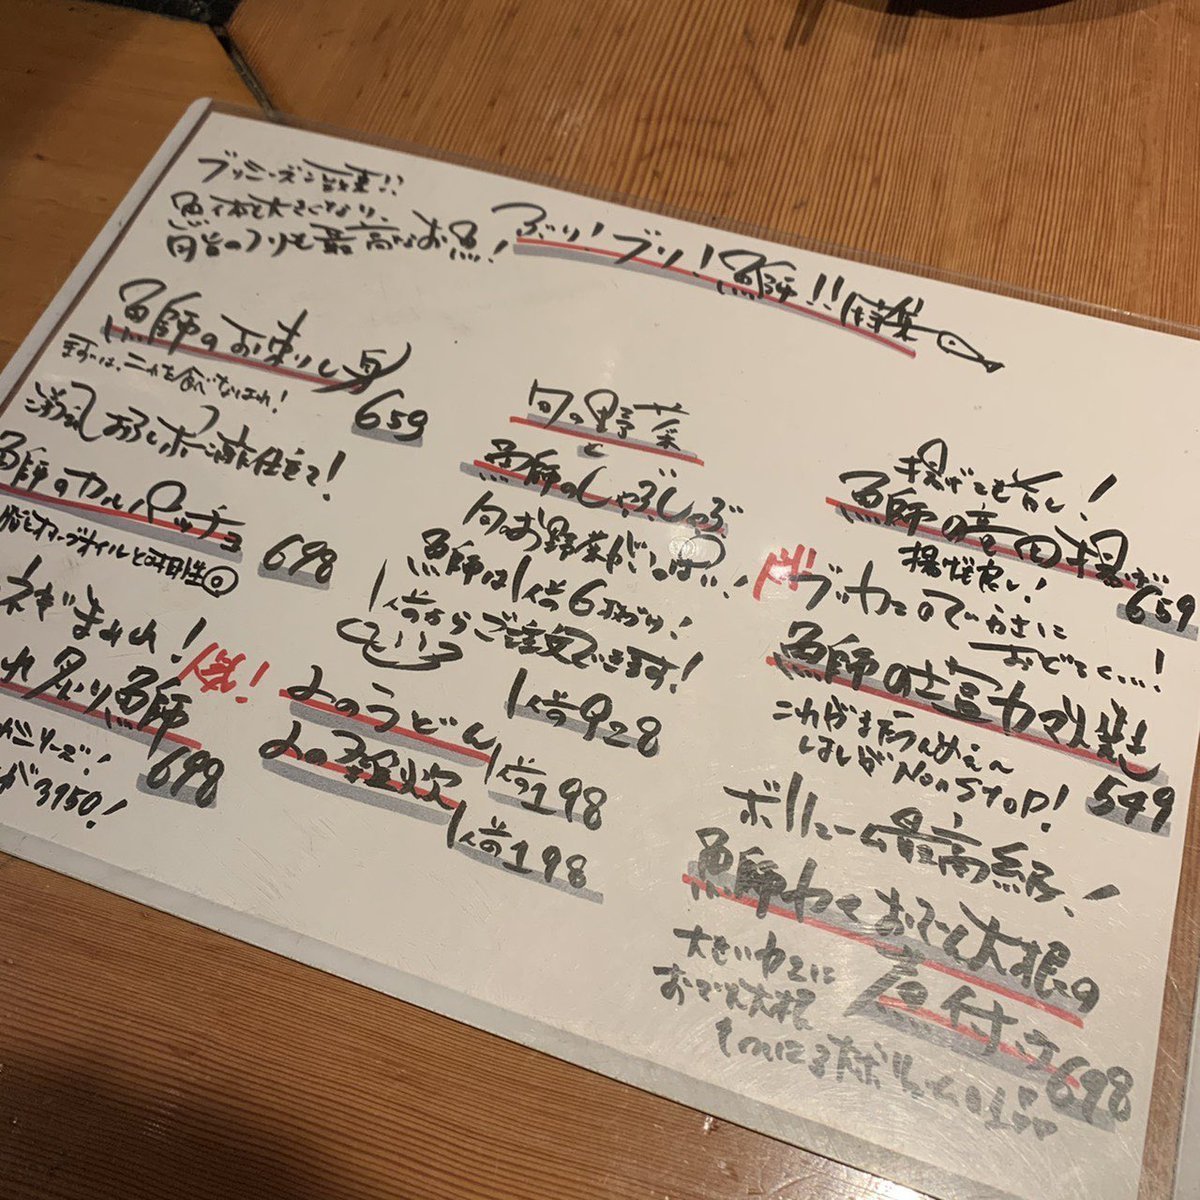 ブリシーズン到来!!
魚体も大きくなり、
旨のブリも最高なお魚!
ぶり!ブリ!鰤!!特集
鰤のお刺し身
まずは、コレを食べなはれ!
659
洋風おろしポン酢仕立て!
鰤のカルパッチョ
オリーブオイルと相性◎
698
ネギまみれ!
鰤
698
シリーズ!
が3150!
旬の野菜
と
鰤のしゃぶしゃぶ
旬お野菜がいっぱい!
鰤は1人前6枚づけ!
1人前からご注文できます!
1人前928
〆のうどん
1人前198
〆の雑炊
1人前198
揚げても旨し!
鰤の竜田揚げ
揚げも良い!
659
ブツカニのでかさに
おどろく…!
鰤の塩カマ焼き
これがまたうんめぇ〜
はしがNon STOP!
549
ボリューム最高級!
鰤カマとおでん大根の
煮付け
698
大きいカマに
おでん大根